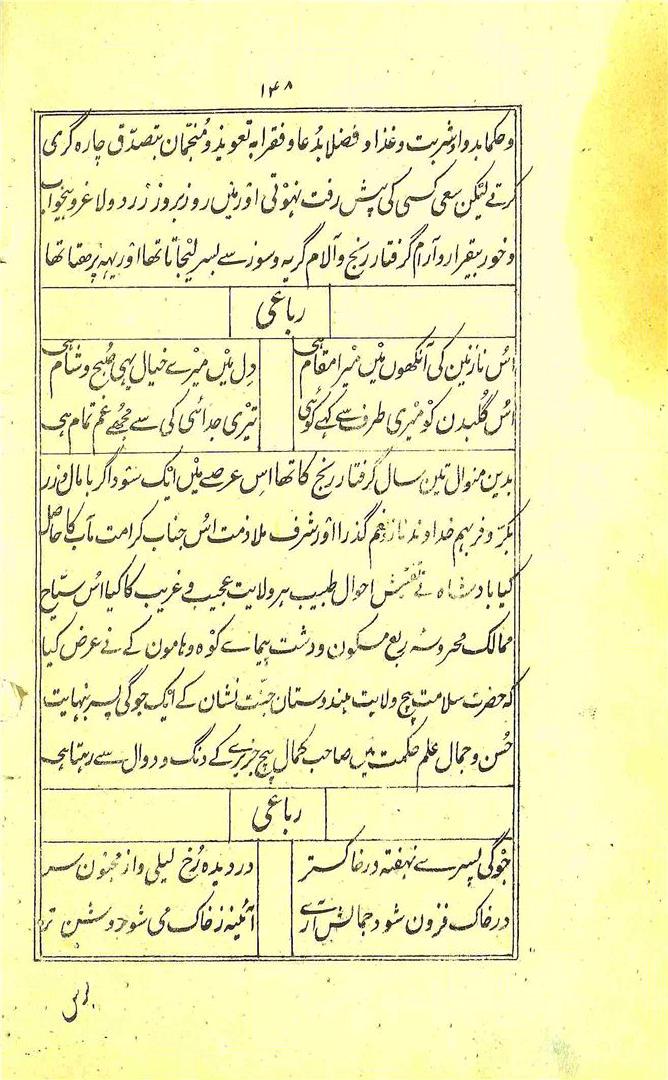 ۱۴۸
و حکما بدوا و شربت و غذا و فضلا بدعا و فقرا به تعویذ و منجمان بتصدق چاره گری
کرتے لیکن سعی کسی کی پیش رفت نہوتی اور مین روز بروز زرد و لاغر و بیخواب
و خور بیقرار و آرام گرفتار رنج و آلام گریه و سوز سے بسر لیجاتا تھا اور یہہ پڑھتا تھا
رباعی
اُس نازنین کی آنکھوں مین میرا مقام ہی
دِل مین میرے خیال یہی صبح و شام ہی
اُس گلبدن کو میری طرف سے کہے کوئی
تیری جدائی کی سے مجھے غم تمام ہی
بدین منوال تین سال گرفتار رنج کا تھا اس عرصے مین ایک سوداگر با مال و زر
بکرّ و فر بہم خداوند ناز و نعم گذرا اور شرف ملازمت اُس جناب کرامت مآب کا حاصل
کیا بادشاہ نے تفتیش احوال طبیب ہر ولایت عجیب و غریب کا کیا اُس سیّاح
ممالک محروسہ ربع مسکون و دشت پیمائے کوہ و ہامون کے نے عرض کیا
کہ حضرت سلامت بیچ ولایت ہندوستان جنّت نشان کے ایک جوگی پسر بنہایت
حُسن و جمال علم حکمت مین صاحب کمال بیچ جزیرے کے دنگ و دوال سے رہتا ہی
رباعی
جوگی پسرے نہفته در خاکستر
دردیده رُخ لیلی و از مجنون سر
در خاک فزون شود جمالش آرے
آئینه ز خاک می شود روشن تر
اس